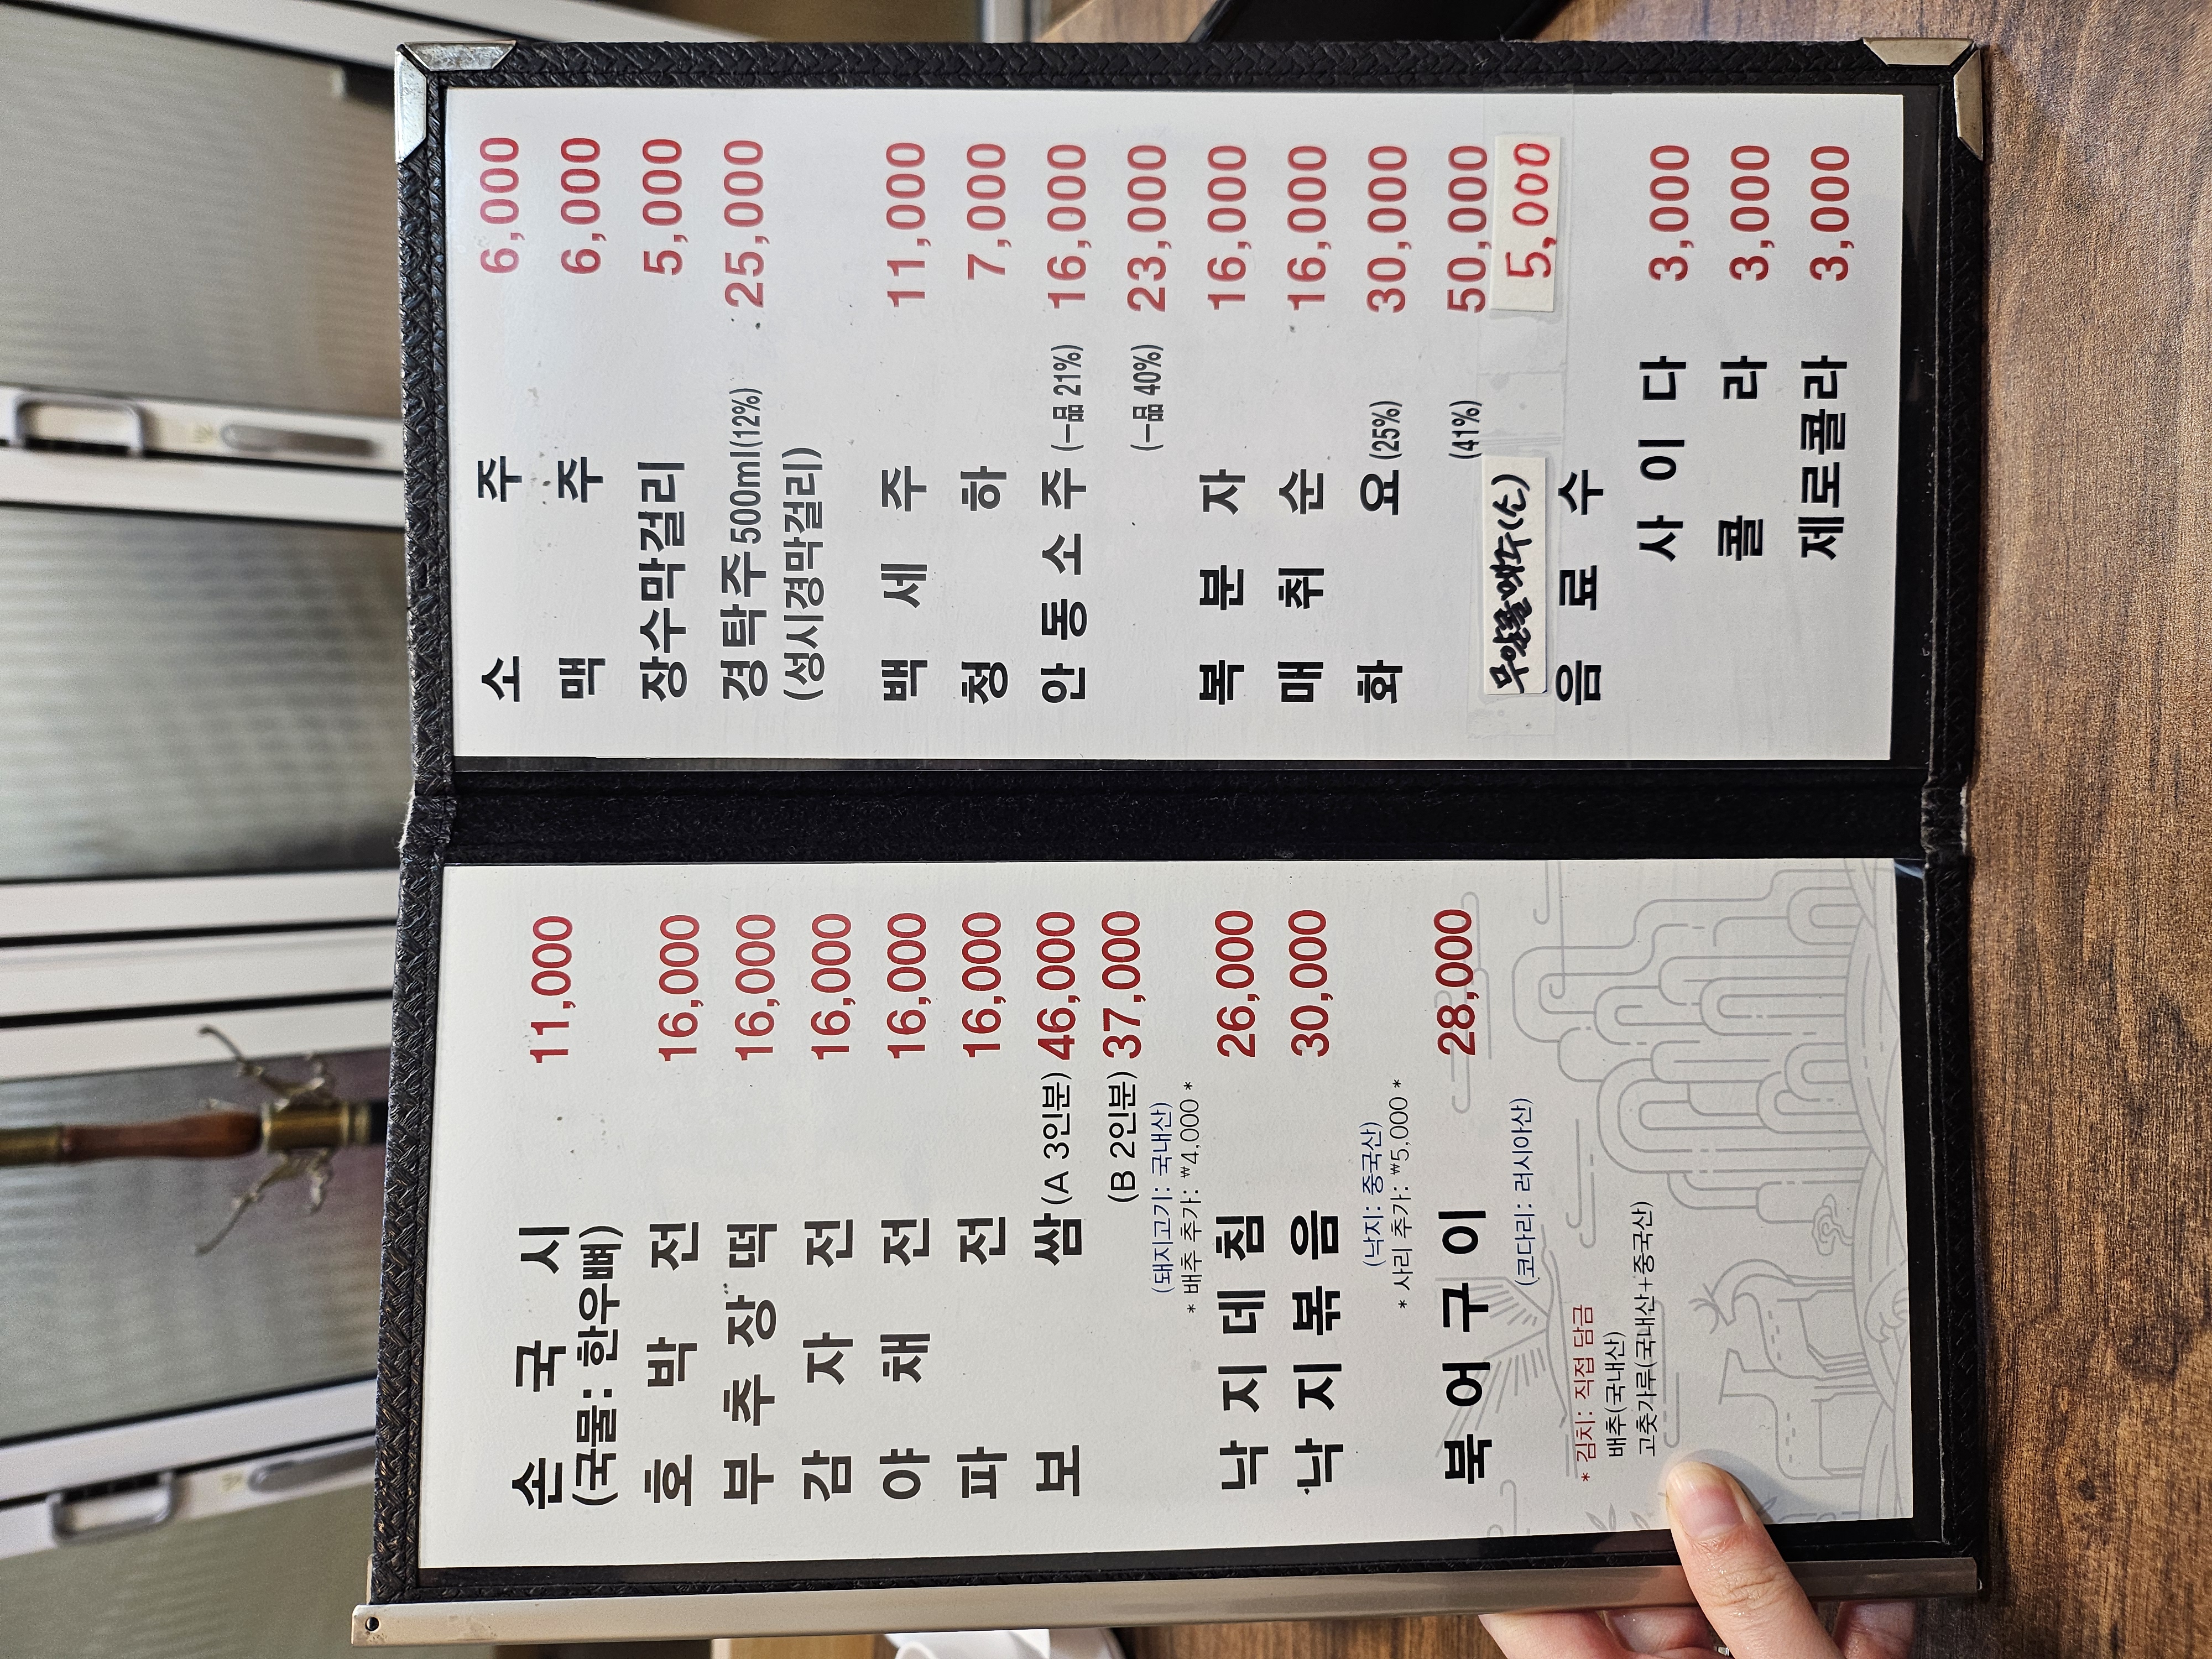 손 국 시 11,000
(국물: 한우뼈)
호 박 전 16,000
부 추 장 떡 16,000
감 자 전 16,000
야 채 전 16,000
파 전 16,000
보 쌈 (A 3인분) 46,000
(B 2인분) 37,000
(돼지고기: 국내산)
* 배추 추가: ₩4,000 *
낙 지 데 침 26,000
낙 지 볶 음 30,000
(낙지: 중국산)
* 사리 추가: ₩5,000 *
북 어 구 이 28,000
(코다리: 러시아산)
* 김치: 직접 담금
배추(국내산)
고춧가루(국내산+중국산)
소 주 6,000
맥 주 6,000
장수막걸리 5,000
경탁주 500ml(12%) 25,000
(성시경막걸리)
백 세 주 11,000
청 하 7,000
안 동 소 주 (一品 21%) 16,000
(一品 40%) 23,000
복 분 자 16,000
매 취 순 16,000
화 요 (25%) 30,000
(41%) 50,000
무알콜맥주(소) 5,000
음 료 수
사 이 다 3,000
콜 라 3,000
제로콜라 3,000